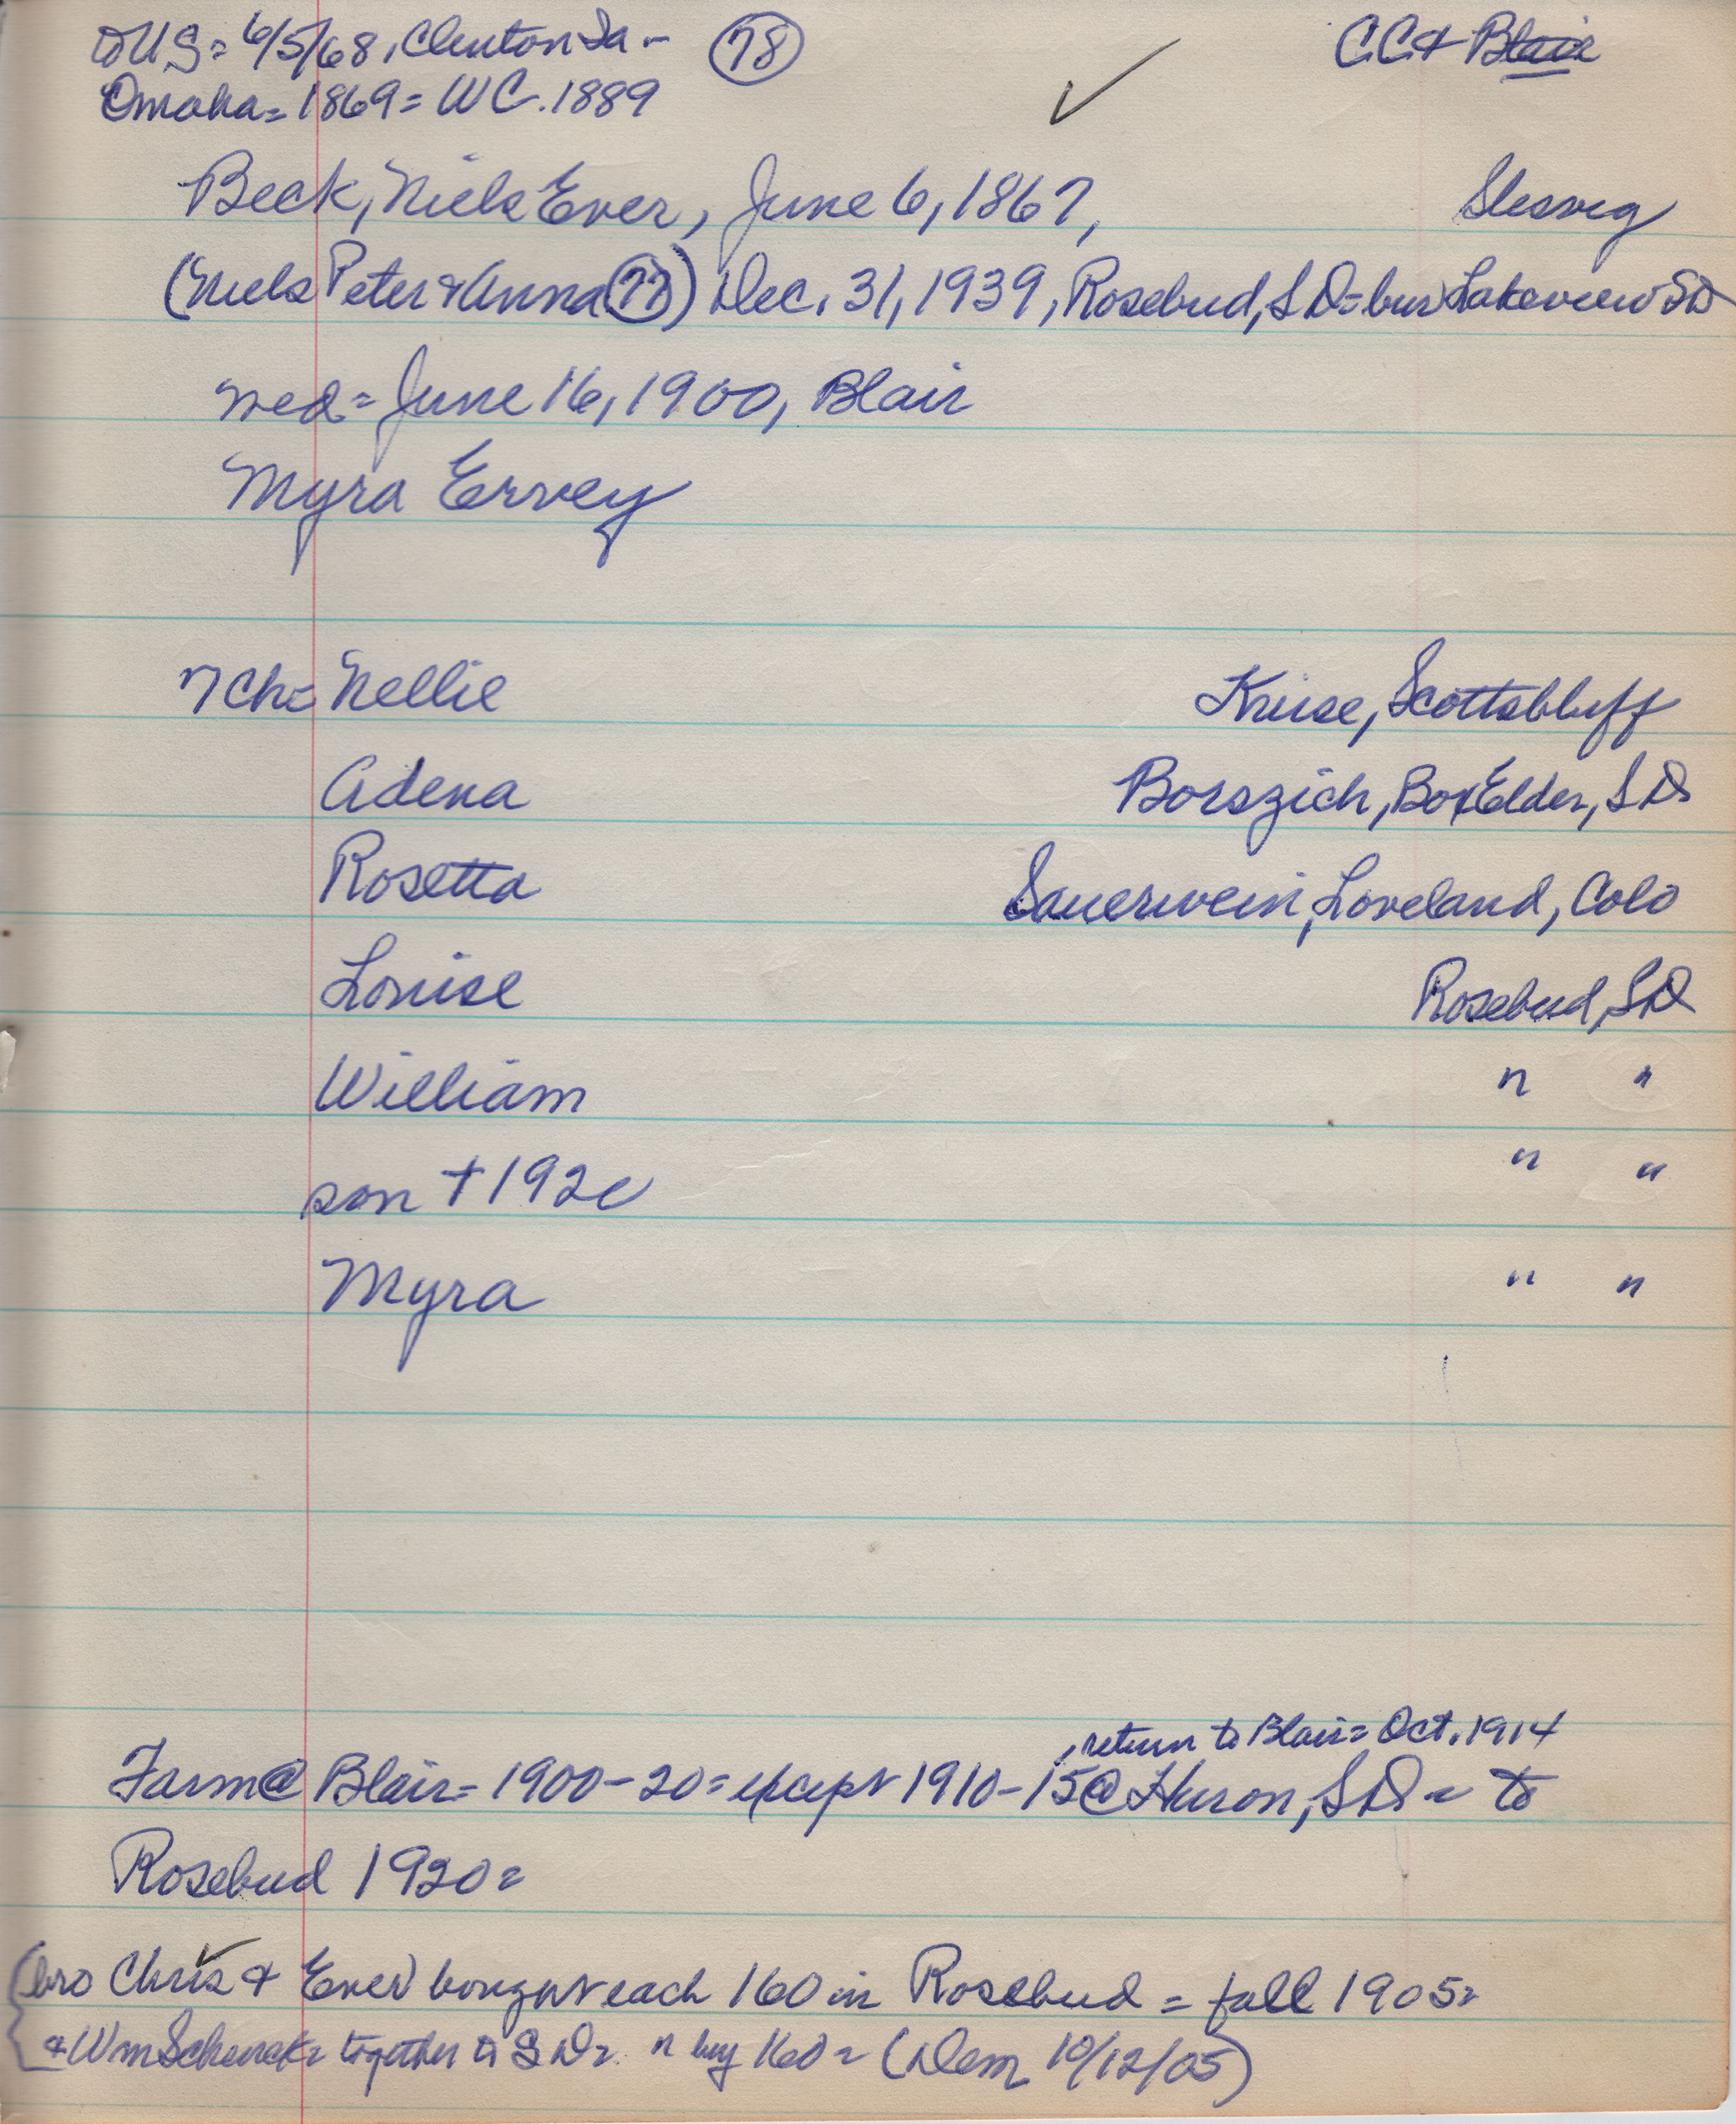 to US = 6/5/68, Clinton Ia - (78) ✓ C.C. & Blair
Omaha = 1869 = WC. 1889
Beck, Niels Ever, June 6, 1867, Slesvig
(Niels Peter & Anna (77)) Dec. 31, 1939, Rosebud, SD = bur Lakeview SD
wed = June 16, 1900, Blair
Myra Ervey
7 ch = Nellie Kruse, Scottsbluff
Adena Borszich, Box Elder, SD
Rosetta Sauerwein, Loveland, Colo
Louise Rosebud, SD
William " "
son + 1920 " "
Myra " "
, return to Blair = Oct. 1914
Farm @ Blair = 1900 - 20 = except 1910 - 15 @ Huron, SD = to
Rosebud 1920 =
(bro Chris & Ever) bought each 160 in Rosebud = fall 1905 =
& Wm Schenck = together to SD = " buy 160 = (Dem 10/12/05)